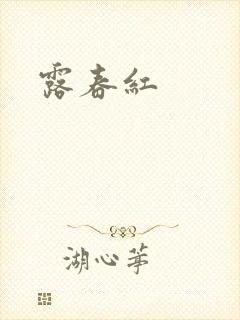 露春紅
湖心